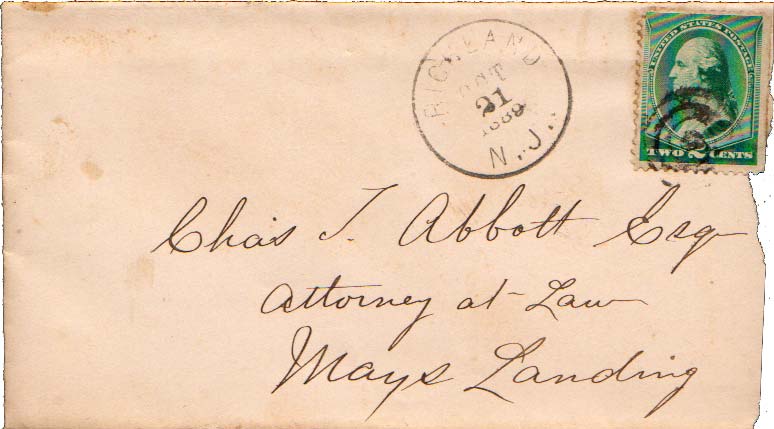 RICHLAND
OCT
21
1889
N.J.
UNITED STATES POSTAGE
TWO 2 CENTS
Chas T. Abbott Esq
Attorney at Law
Mays Landing